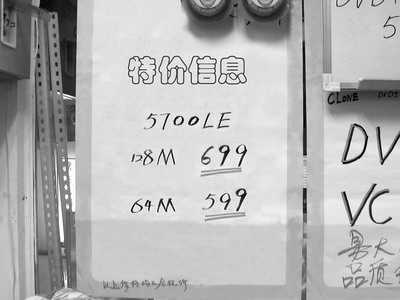 特价信息
5700LE
128M 699
64M 599
DVD
5
CLONE
DV
VC
品质